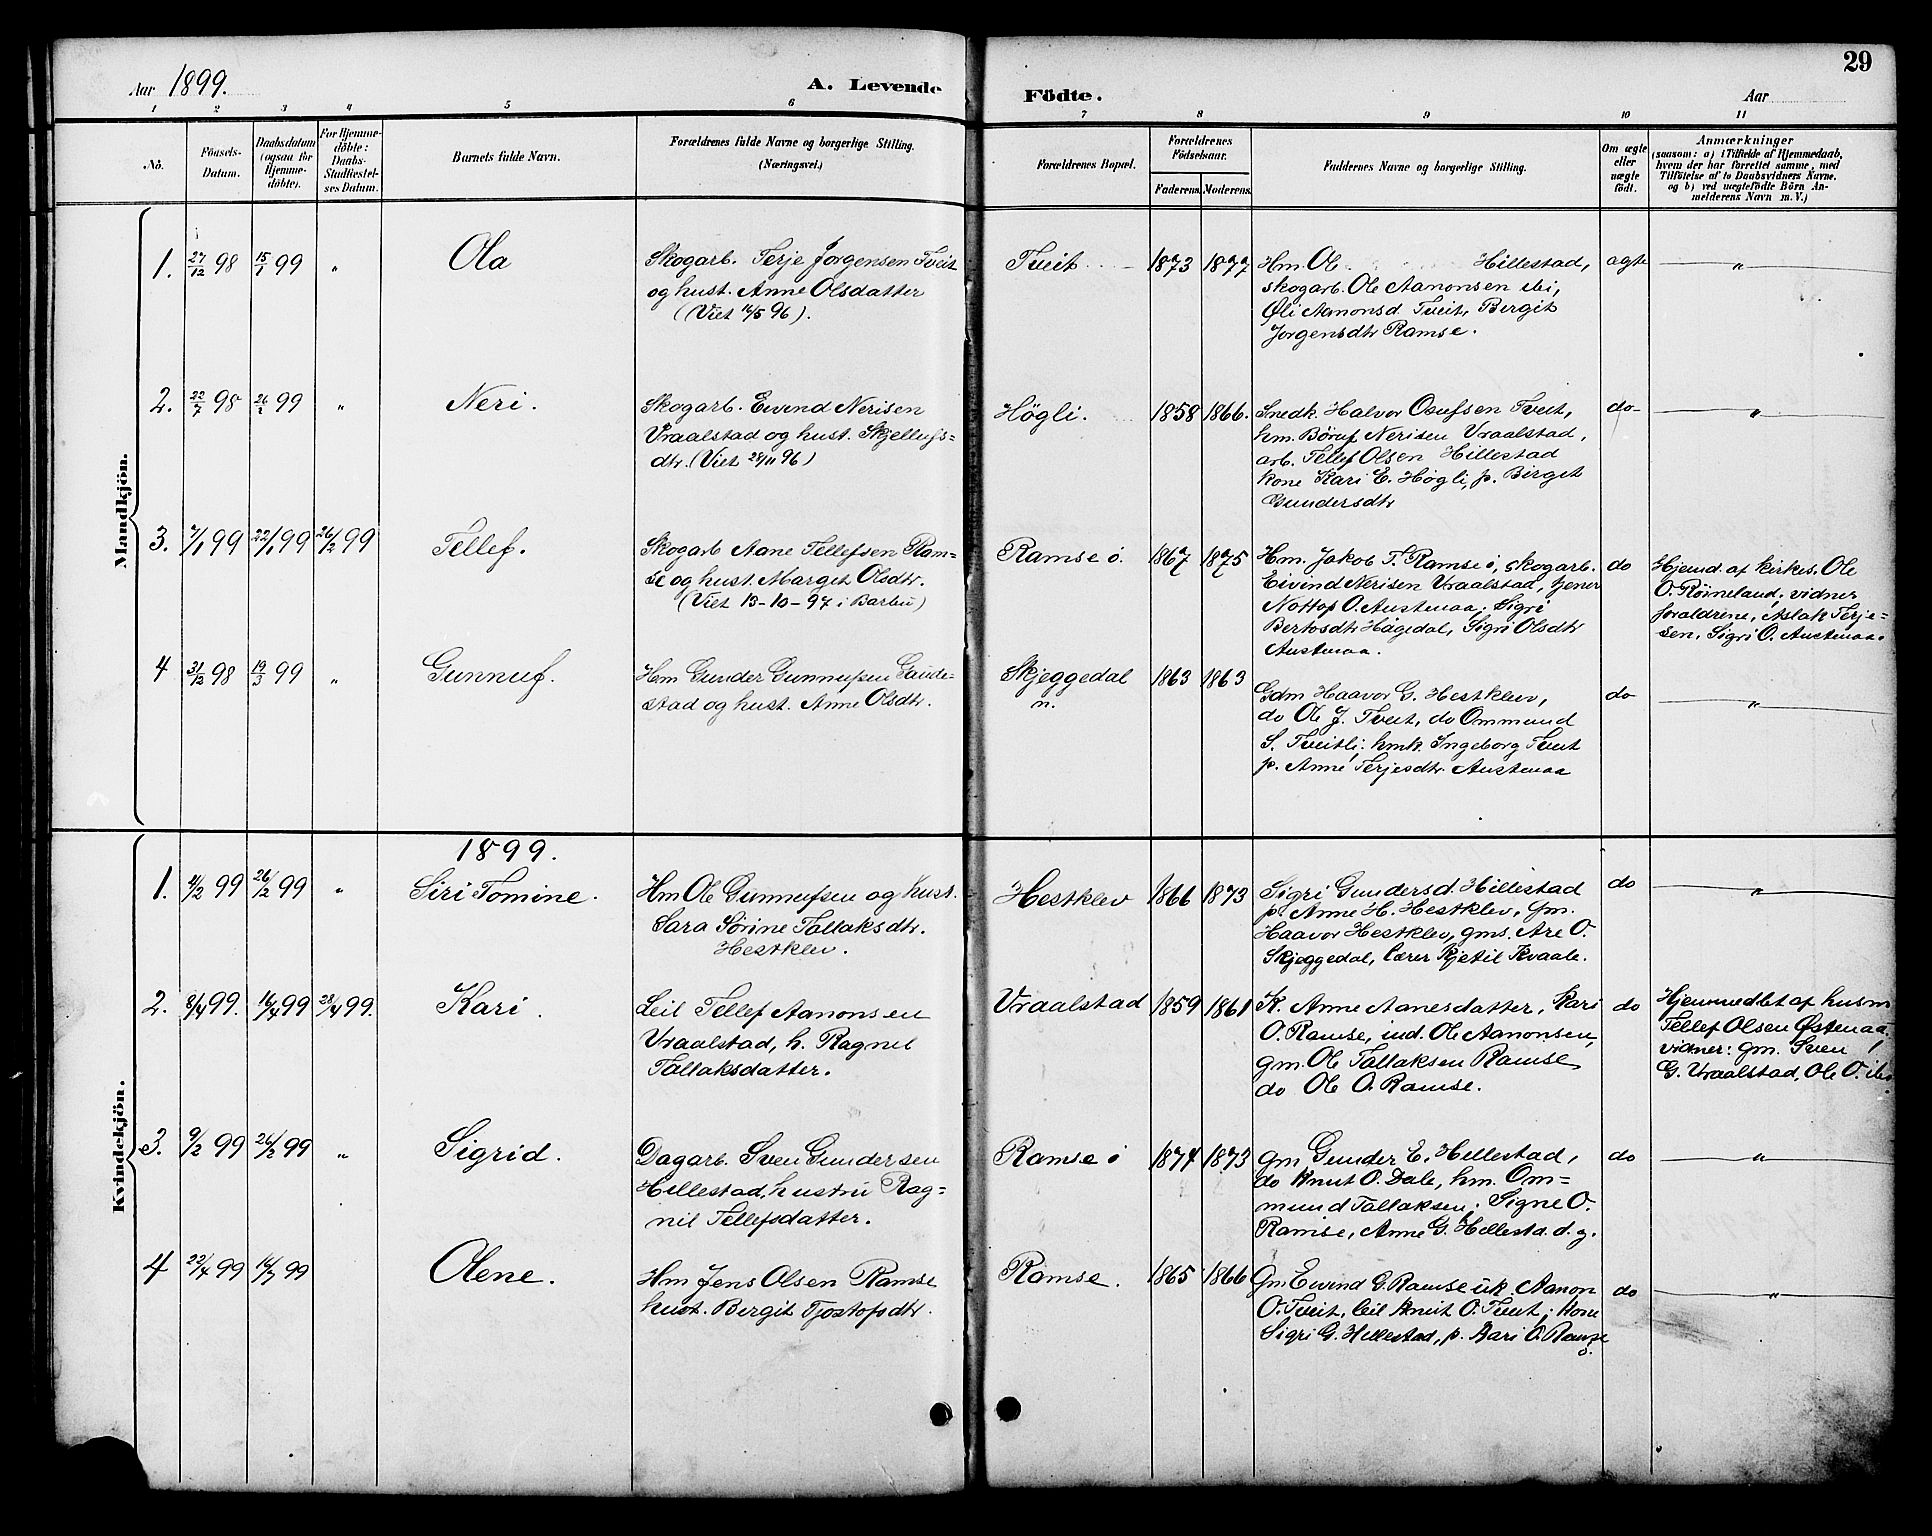 29
Aar 1899.
A. Levende
Födte.
Aar
1 2 3 4 5 6 7 8 9 10 11
No.
Fönsels-
Datum.
Daabsdatum
(ogsaa for
Hjemme-
döbte).
For Hjemme-
döbte:
Daabs-
Stadfæstel-
ses Datum.
Barnets fulde Navn.
Forældrenes fulde Navne og borgerlige Stilling.
(Næringsvei.)
Forældrenes Bopæl.
Forældrenes
Födselsaar.
Faderens. Moderens.
Faddernes Navne og borgerlige Stilling.
Om ægte
eller
uægte
födt.
Anmærkninger
(saasom: a) i Tilfælde af Hjemmedaab,
hvem der har forrettet samme, med
Tilföielse af to Daabsvidners Navne.
og b) ved uægtefödte Börn An-
melderens Navn m. V.)
Mandkjön.
1. 27/12 98 15/1 99 " Ola
Skogarb. Terje Jørgensen Tveit
og hust. Anne Olsdatter
(Viet 11/5 96).
Tveit 1873 1877
Hm. Ol. Hillestad,
skogarb. Ole Aanonsen ibi,
Øli Aanonsd. Tveit, Bergit
Jorgensdtr Ramse.
ægte "
2. 22/7 98 26/2 99 " Neri.
Skogarb. Eivind Nerisen
Vraalstad og hust. Skjellufs-
dtr. (Viet 28/11 96)
Högli. 1858 1866.
Snedk. Halvor Osufsen Tveit,
hm. Børuf Nerisen Vraalstad,
arb. Tellef Olsen Hillestad
kone Kari E. Høgli, p. Birgit
Gundersdtr
do "
3. 7/1 99 22/1 99 26/2 99 Tellef.
Skogarb Aane Tellefsen Ram-
se og hust. Marget Olsdtr.
(Viet 13-10-97 i Barbu)
Ramse ø. 1867 1875
Hm. Jakob T. Ramse ø, skogarb.
Eivind Nerisen Vraalstad, tjener
Nottop O. Austenaa; Sigri
Bertosdtr Hägedal, Sigri Olsdtr
Austenaa.
do
Hjemd. af kirkes. Ole
O. Röineland; vidner
forældrene, Aslak Terje-
sen, Sigri O. Austenaa.
4 31/12 98 19/3 99 " Gunnuf.
Hm Gunder Gunnufsen Gaude-
stad og hust. Anne Olsdtr.
Skjeggedal
n. 1863 1863
Gdm Haavor G. Hestklev,
do Ole J. Tveit, do Ommund
S. Tveitli; hmk. Ingeborg Tveit
p. Anne Terjesdtr. Austenaa
do "
Kvindekjön.
1899.
1. 4/2 99 26/2 99 " Siri Tomine.
Hm Ole Gunnufsen og hust.
Sara Sörine Tallaksdtr.
Hestklev.
Hestklev 1866 1873
Sigri Gundersd. Hillestad
p. Anne H. Hestklev, gm.
Haavor Hestklev, gms. Are O.
Skjeggedal, lærer Kjetil Kvaale.
do "
2. 8/4 99. 16/4 99 28/4 99. Kari.
Leil Tellef Aanonsen
Vraalstad, h. Ragnil
Tallaksdatter.
Vraalstad 1859 1861
K. Anne Aanesdatter, Kari
O. Ramse, ind. Ole Aanonsen,
gm. Ole Tallaksen Ramse
do Ole O. Ramse.
do
Hjemmedbt af husm
Tellef Olsen Østenaa
vidner: gm. Sven
G. Vraalstad, Ole O. ibi.
3. 9/2 99 26/2 99 " Sigrid.
Dagarb. Sven Gundersen
Hillestad, hustru Rag-
nil Tellefsdatter.
Ramse ø 1874 1873
gm Gunder E. Hillestad,
do Knut O. Dale, hm. Om-
mund Tallaksen; Signe O.
Ramse, Anne G. Hillestad. g.
do "
4 22/4 99 16/7 99 Olene.
Hm Jens Olsen Ramse
hust. Bergit Tjostofsdtr.
Ramse. 1865 1866
Gm Eivind G. Ramse uk. Aanon
O. Tveit, leil Knut O. Tveit; Kone
Sigri G. Hillestad, p. Kari O. Ramse
ø.
do "